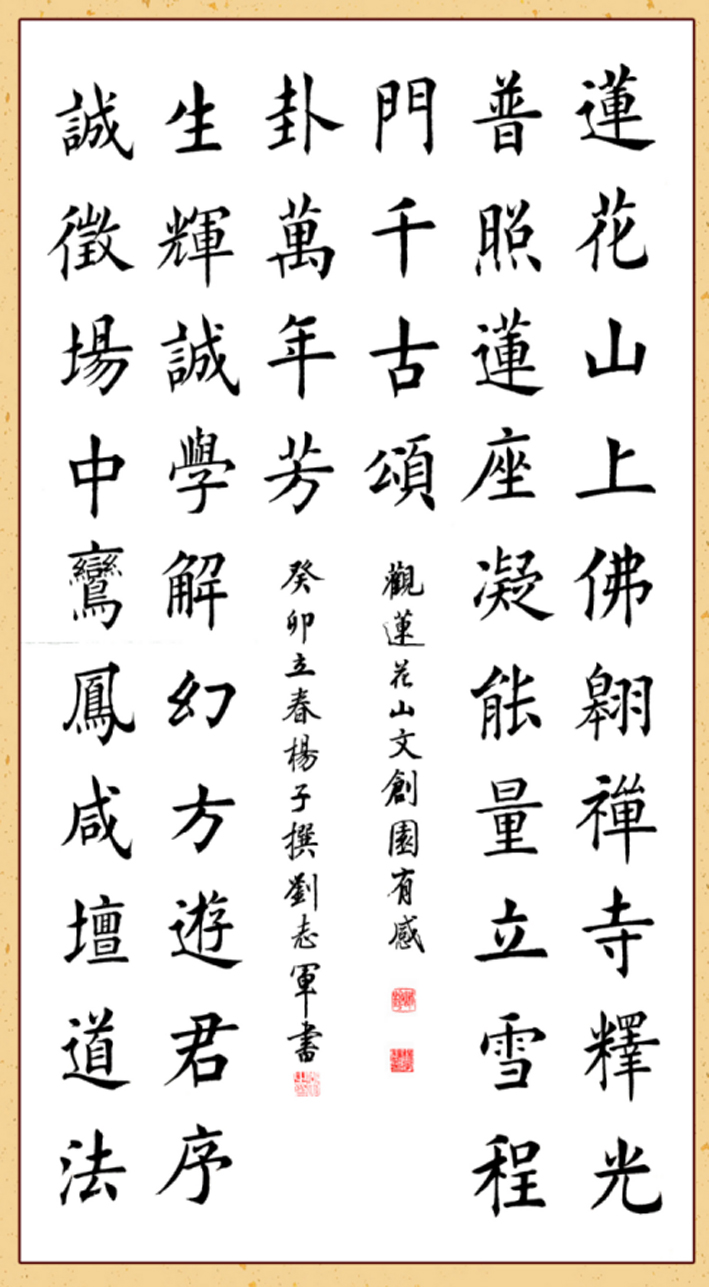 蓮花山上佛翱禪寺釋光
普照蓮座凝能量立雪程
門千古頌
觀蓮花山文創園有感
誠徵場中鸞鳳咸壇道法
生輝誠學解幻方遊君序
卦萬年芳
癸卯立春楊子撰劉志軍書